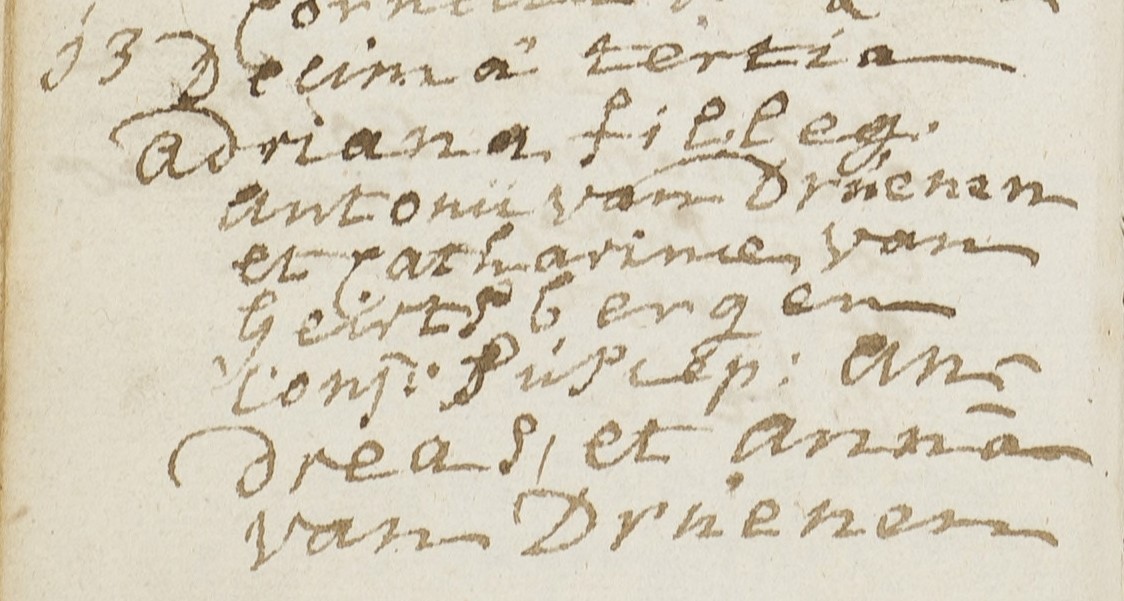 13 Decimâ tertia
Adriana fil: leg.
Antonii van Drúenen
et Catharinae van
Geertsbergen
Conj: Súscep: An-
dreas, et Anna
van Drúenen